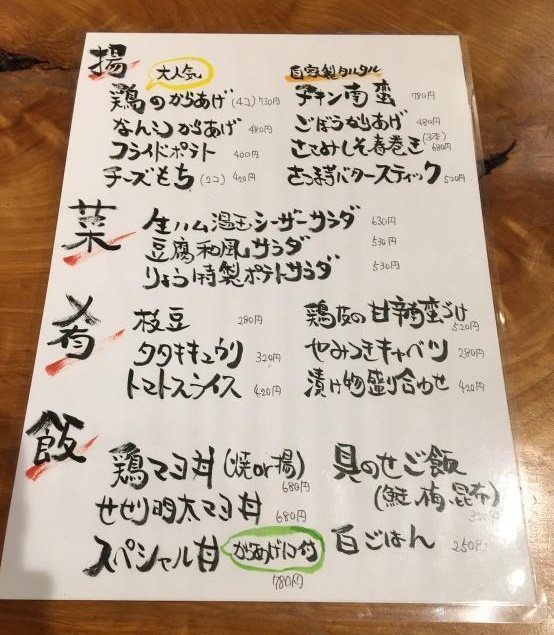 揚
大人気
自家製タルタル
鶏のからあげ (4コ) 730円
チキン南蛮 780円
なんこつからあげ 480円
ごぼうからあげ 480円
フライドポテト 400円
ささみしそ春巻き (3本) 680円
チーズもち (2コ) 420円
さつま芋バタースティック 520円
菜
生ハム温玉シーザーサラダ 630円
豆腐和風サラダ 530円
りょう特製ポテトサラダ 530円
肴
枝豆 280円
鶏皮の甘辛南蛮づけ 520円
タタキキュウリ 320円
やみつきキャベツ 280円
トマトスライス 420円
漬け物盛り合わせ 420円
飯
鶏マヨ丼 (焼or揚) 680円
具のせご飯
(鮭、梅、昆布)
せせり明太マヨ丼 680円
スペシャル丼 からあげ1コ付 780円
白ごはん 250円